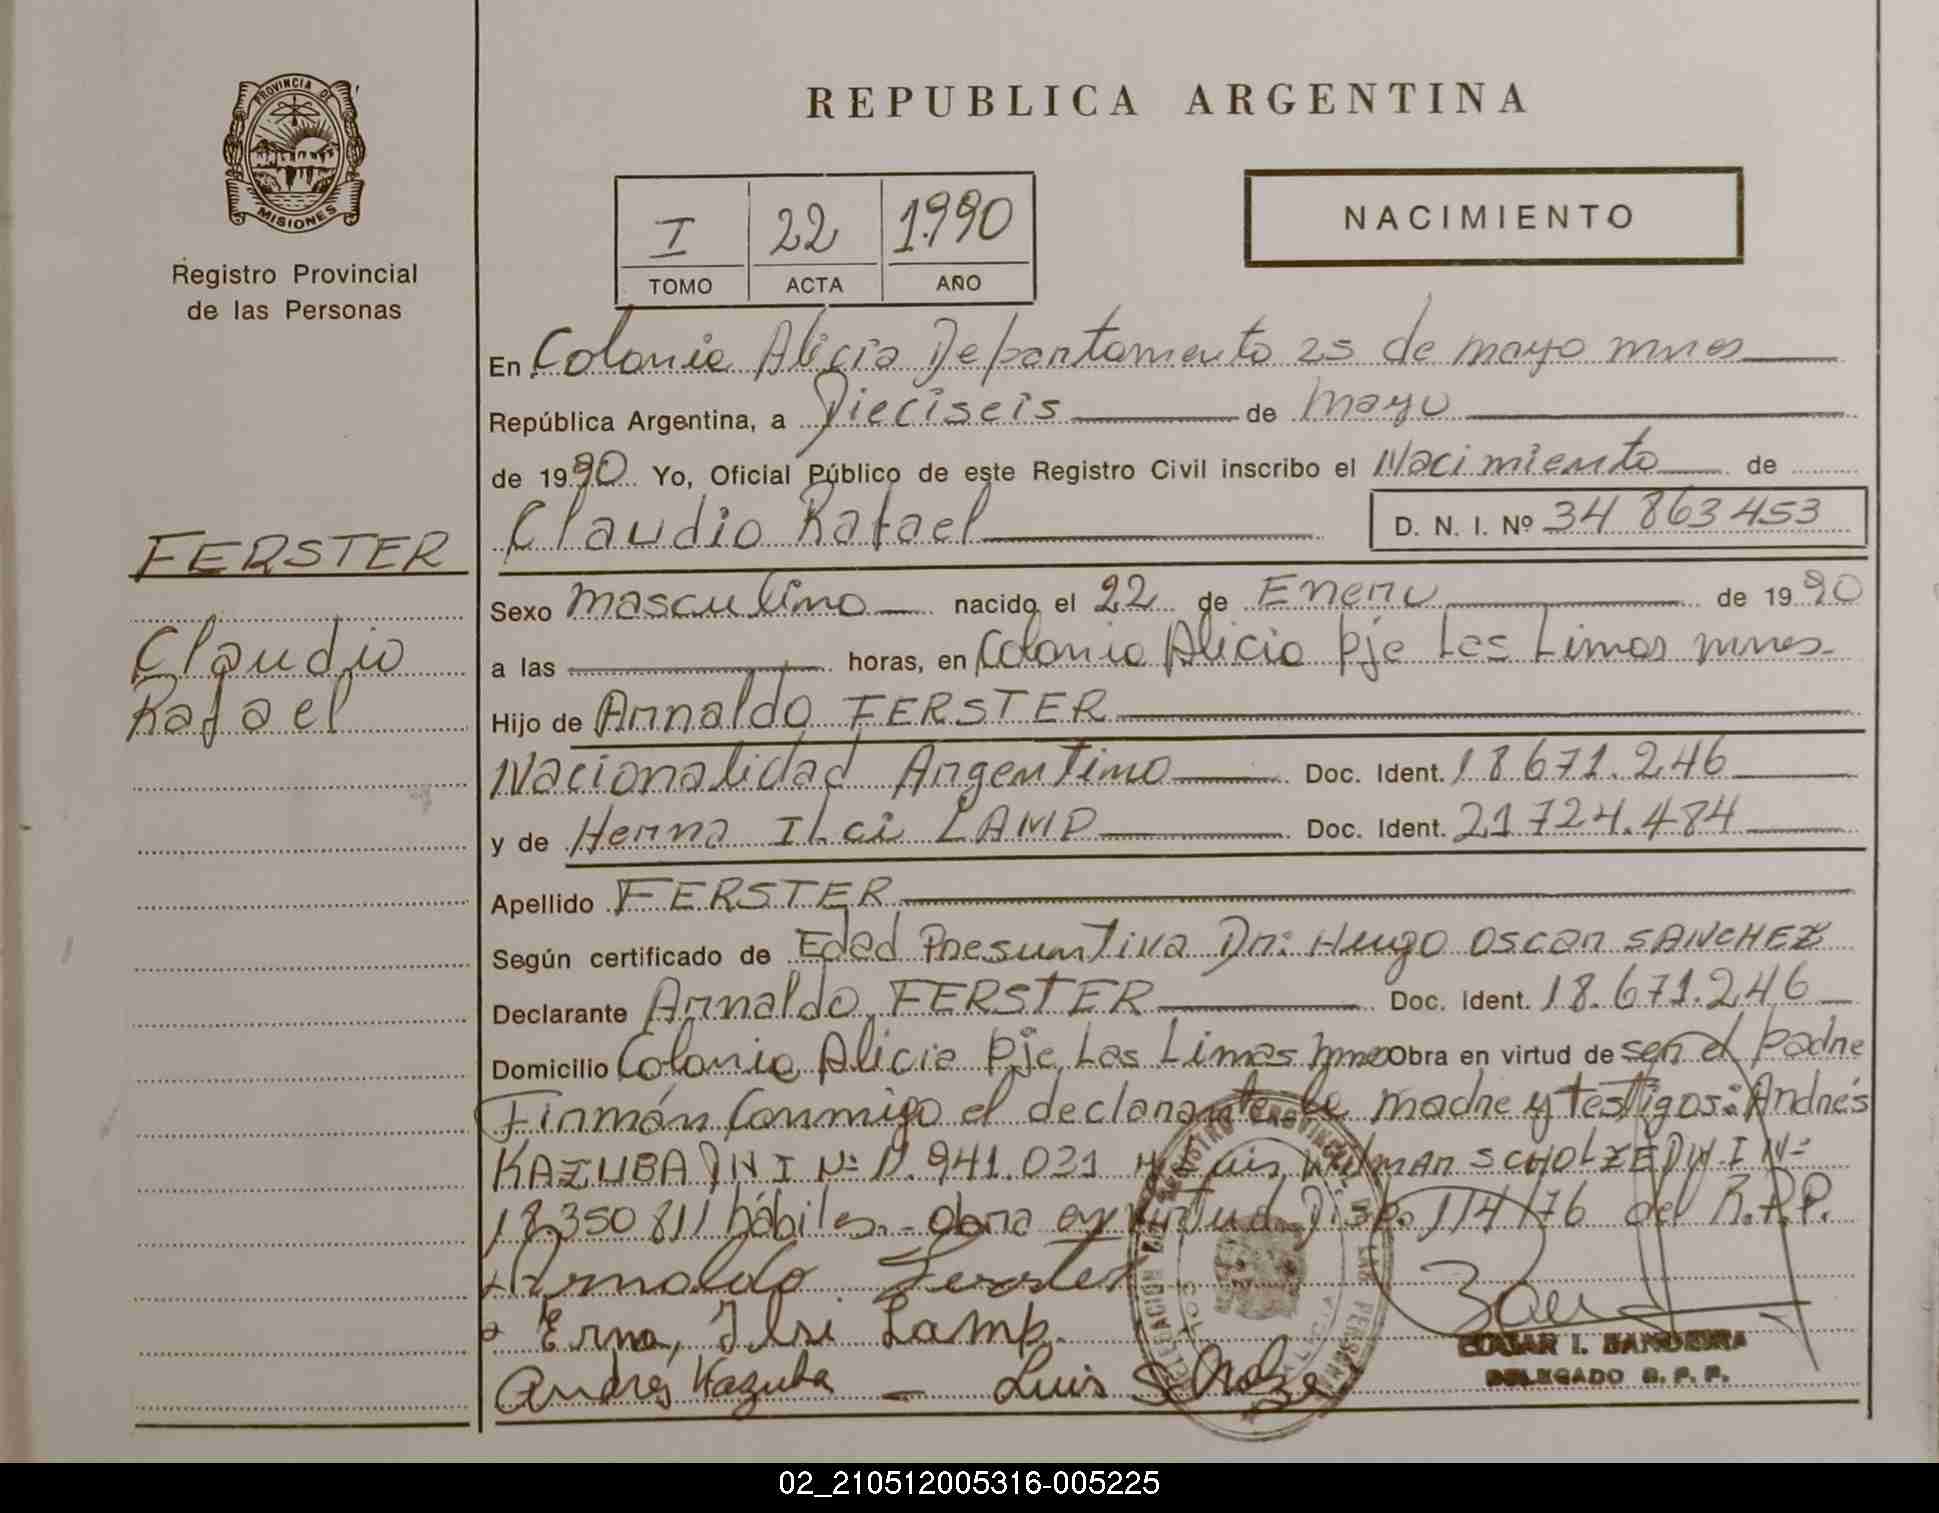 PROVINCIA DE
MISIONES
Registro Provincial
de las Personas
FERSTER
Claudio
Rafael
REPUBLICA ARGENTINA
I 22 1.990
TOMO ACTA AÑO
NACIMIENTO
En Colonia Alicia Departamento 25 de mayo mnes
República Argentina, a Dieciseis de mayo
de 1990 Yo, Oficial Público de este Registro Civil inscribo el Nacimiento de
Claudio Rafael D. N. I. Nº 34 863453
Sexo masculino nacido el 22 de Enero de 1990
a las horas, en Colonia Alicia Pje Las Limas mnes-
Hijo de Arnaldo FERSTER
Nacionalidad Argentino Doc. Ident. 18671.246
y de Herna ILci LAMP Doc. Ident. 21724.484
Apellido FERSTER
Según certificado de Edad Presuntiva Dr: Hugo Oscar SANCHEZ
Declarante Arnaldo FERSTER Doc. Ident. 18.671.246
Domicilio Colonia Alicia Pje Las Limas mnes Obra en virtud de ser el Padre
Firmán Conmigo el declarante la madre y testigos: Andrés
KAZUBA DNI Nº 17.941.031 Luis Wilmar SCHOLZE DN.I Nº
18350811 hábiles.- obra en virtud Disp. 114/76 del R.P.P.
Arnaldo Ferster
Erna, Ilsi Lamp.
Andres Kazuba - Luis Scholze
DELEGADO R. P. P.
02_210512005316-005225